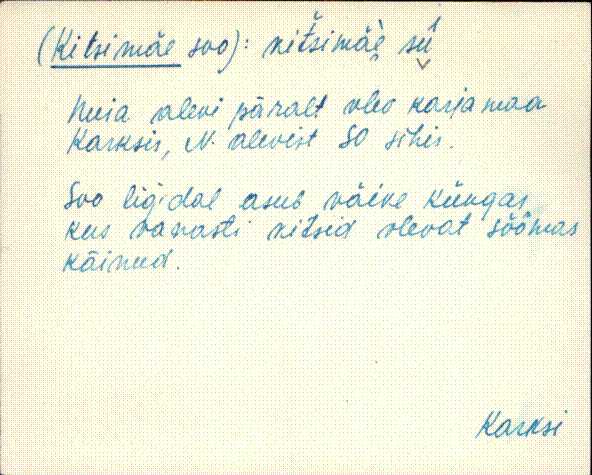 (Kitsimäe soo): kitsimäe sú
Nuia alevi päralt olev karjamaa
Karksis, N. alevist SO sihis.
Soo ligidal asub väike küngas,
kus vanasti kitsid olevat söömas
käinud.
Karksi